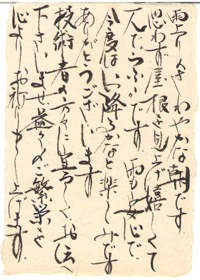 雨上りのさわやかな朝です
思わず屋根を見上げ嬉しくて
一人だつぶやきです 雨も安心で
今度はいつ降るかなと楽しみです
ありがとうございます
技術者の方々に宜しくお伝へ
下さいませ 益々のご繁栄を
心よりお祈り申し上げます